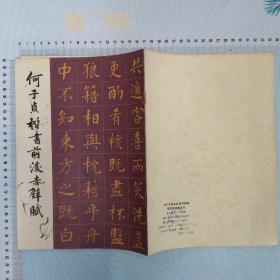 何子貞楷書前後赤壁賦
共適客喜而笑洗盞
更酌肴核既盡杯盤
狼籍相與枕藉乎舟
中不知東方之既白